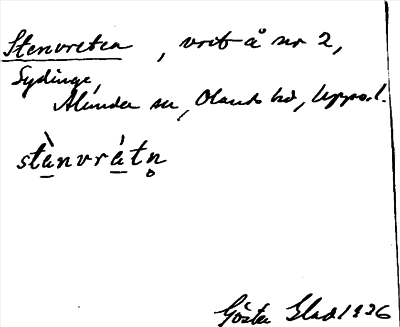 Stenvreten, vret å nr 2,
Sydinge,
Alunda sn, Olands hd, Uppsal.
stànvrátn̥
Gösta Glad 1926